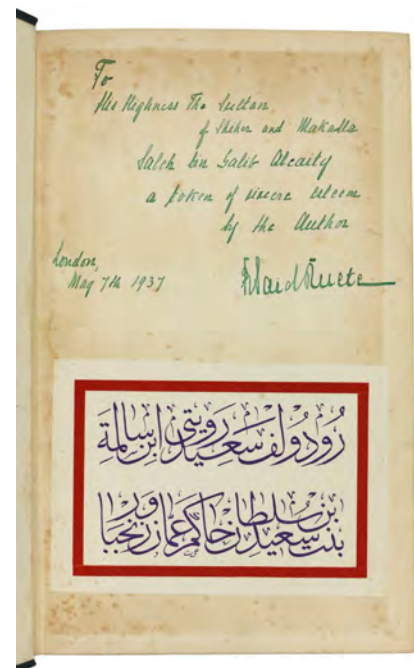 To
His Highness The Sultan
of Shiher and Makalla
Saleh bin Galib Alcaity
a token of sincere esteem
by the Author
London,
May 7th 1937
R Said Ruete
رُودُولف سَعِيد رويتي ابن سالمة
بنت سعيد بن سلطان حاكم عمان وزنجبار